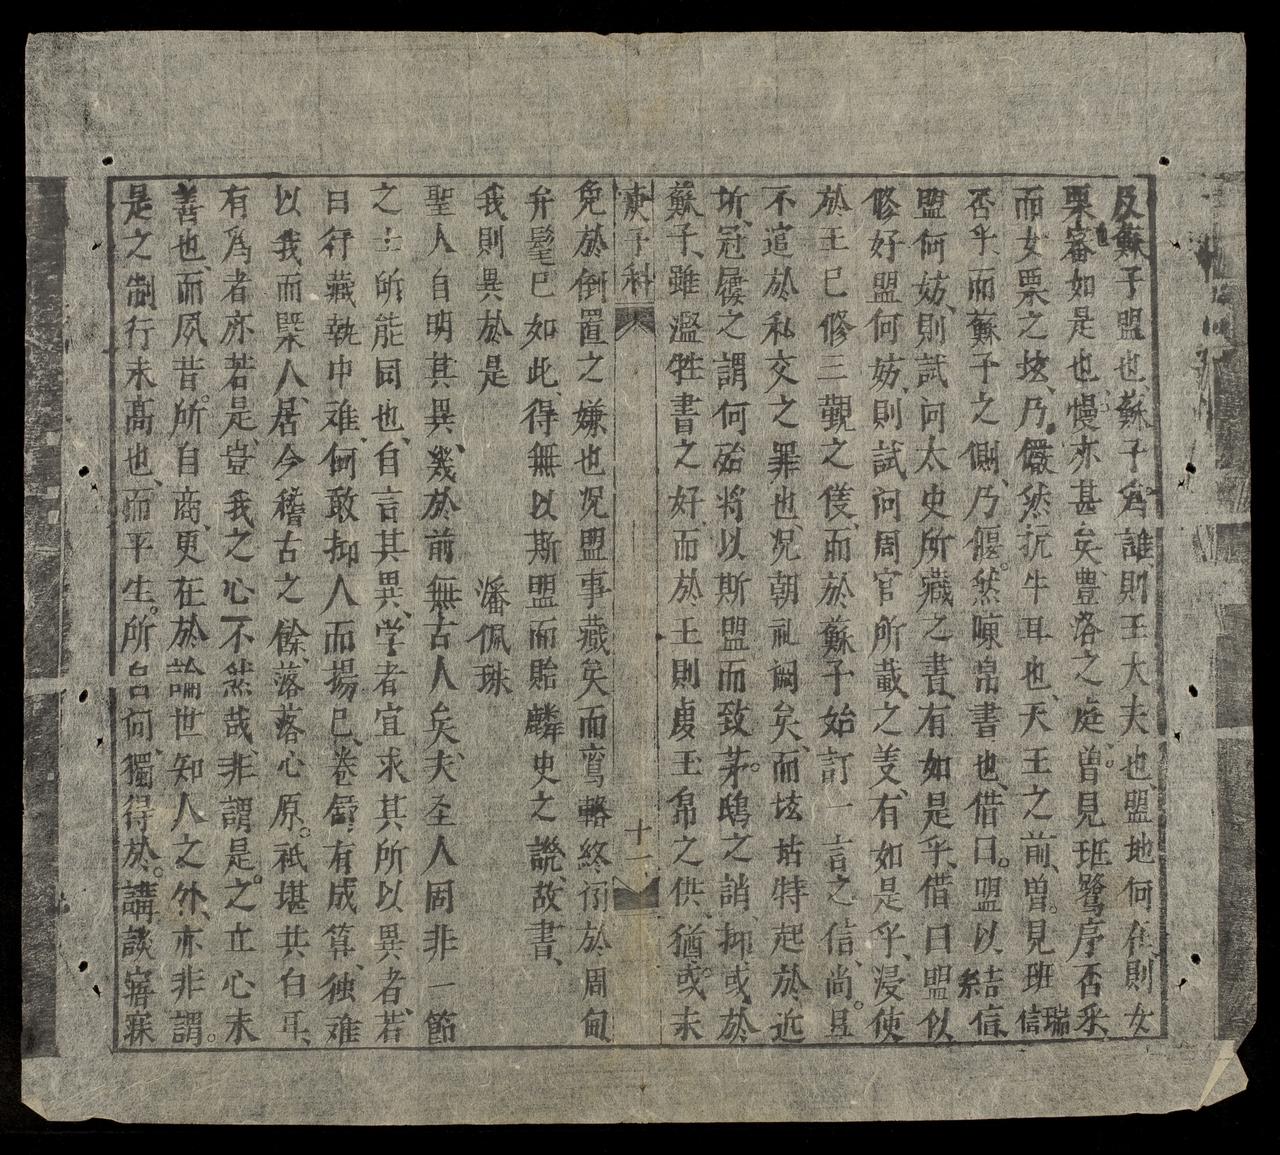 及蘇子盟也、蘇子爲誰、則王大夫也、盟地何在、則女
栗、審如是也、慢亦甚矣、豊洛之庭。曽見班鷺序否乎、
而女栗之垓、乃儼然抗牛耳也、天王之前、曽。見班瑞信
否乎、而蘇子之側、乃偃。然陳帛書也、借曰。盟以結信、
盟何妨、則試问太史所藏之書、有如是乎、借曰盟以
修好盟何妨、則試问周官所載、之羑、有如是乎、浸使
於王已修三覲之僕、而於蘇子始訂一言之信、尚。且
不逭於私交之罪也、况朝礼闕矣、而垓坫特起於近
圻、冠屨之謂何、殆將以斯盟而致茅。鴟之誚、抑或於
蘇子、雖濫牲書之好、而於王則虔玉帛之供、猶或。未
庚子科
十一
免於倒置之嫌也况盟事藏矣而鸞輅終伺於周甸
弁髦已如此、得無以斯盟而貽麟史之譏、故書、
我則異於是　潘佩珠
聖人自明其異、幾於前無古人矣、夫圣人固非一節
之士所能同也、自言其異、学者宜求其所以異者、若
曰行藏執中难、何敢抑人而揚己、卷舒有成算、独难
以我而槩人、居今稽古之餘、落落心原。祇堪共白耳、
有爲者亦若是、豈我之心不然哉、非謂是。之立心未
善也、而夙昔。所自商、更在於論世知人之外、亦非謂。
是之制行未髙也、而平生。所自何、獨得於。講談寤寐